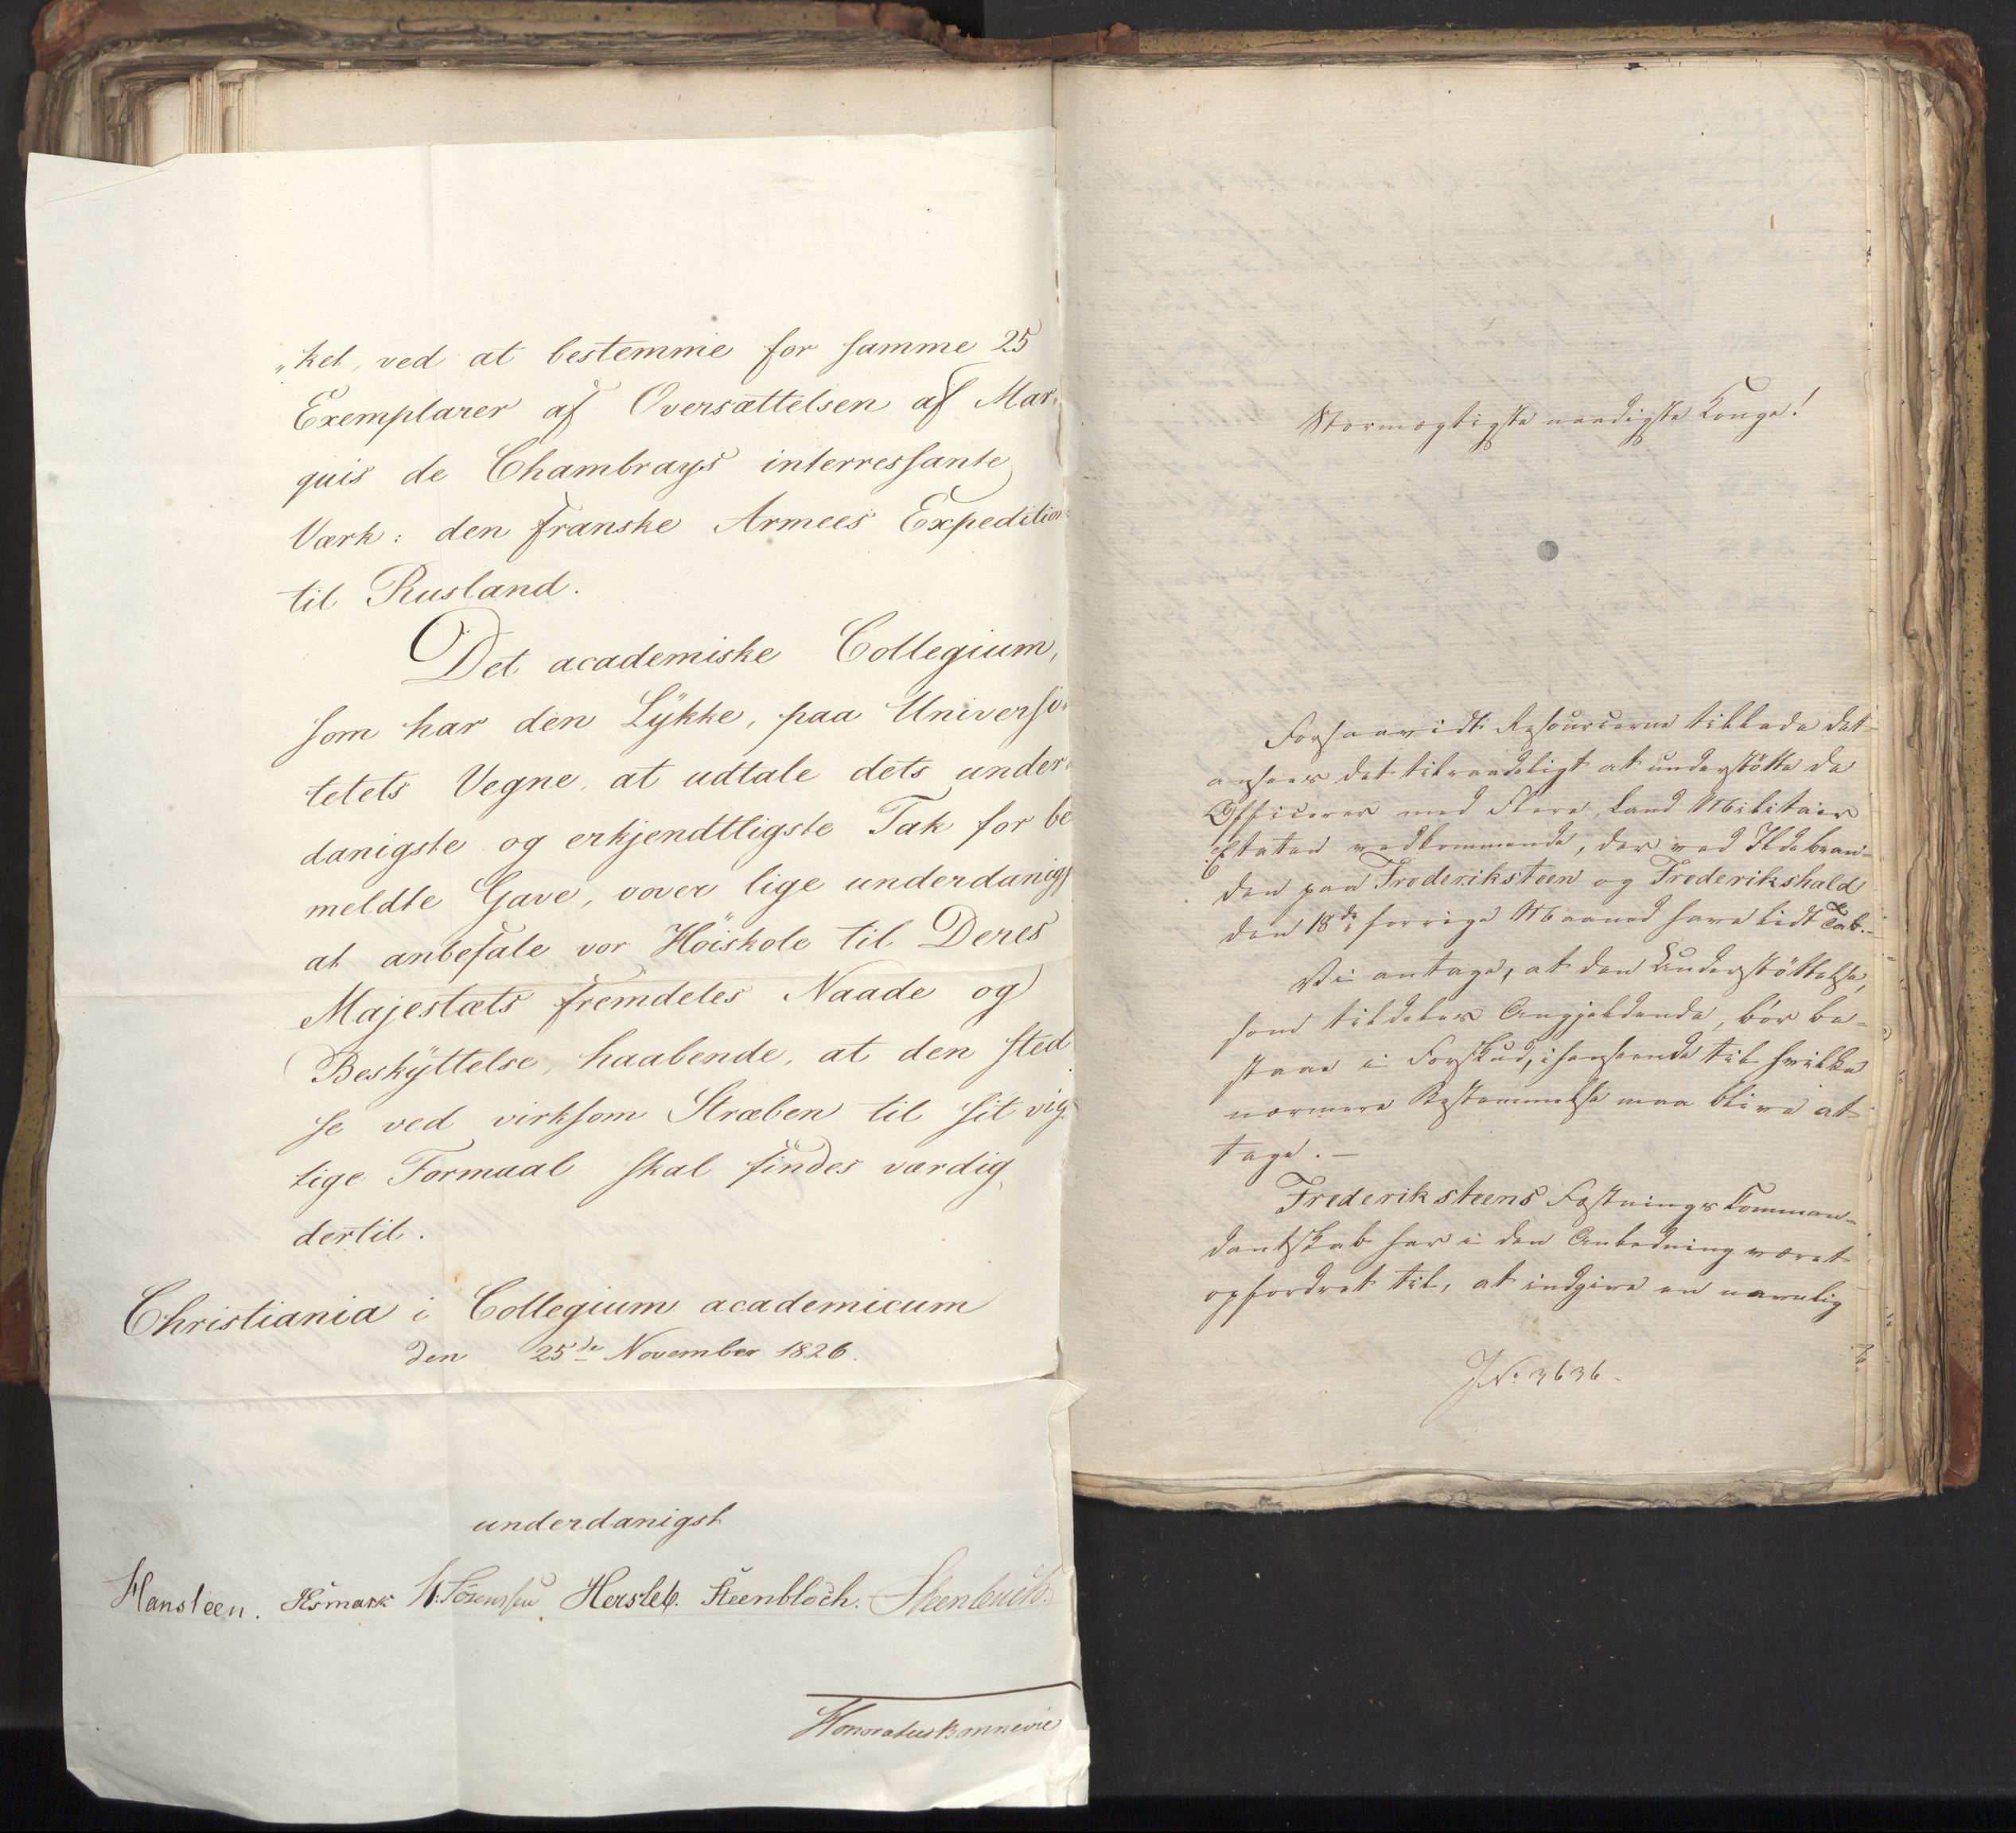 „ket, ved at bestemme for samme 25
Exemplarer af Oversættelsen af Mar„
quis de Chambrays interressante
Værk: den franske Armees Expedition
til Rusland.
Det academiske Collegium,
som har den Lykke, paa Universi„
tetets Vegne, at udtale dets under„
danigste og erkjendtligste Tak for be
meldte Gave, vover lige underdanigst
at anbefale vor Höiskole til Deres
Majestæts fremdeles Naade og
Beskyttelse, haabende, at den sted
se ved virksom Stræben til sit vig
tige Formaal skal findes værdig
dertil.
Christiania i Collegium academicum
den 25de November 1826.
underdanigst
Hansteen. Esmark N: Sörenssen Hersleb. Steenbloch. Steenbuch.
Honoratus Bonnevie
Stormægtigste naadigste Konge!
Forsaavidt Resourcerne tillade det
ansees det tilraadeligt at understötte de
Officerer med Flere, Land Militair
Etaten vedkommende, der ved Ildebran-
den paa Frederiksteen og Frederikshald
den 18de forrige Maaned have lidt Tab.-
Vi antage, at den Understöttelse,
som tildeles Angjeldende, bör be-
staae i Forskud, ihenseende til hvilke
nærmere Bestemmelse maa blive at
tage. —
Frederiksteens Fæstnings Komman-
dantskab har i den Anledning været
opfordret til, at indgive en navnlig
J No. 3636.